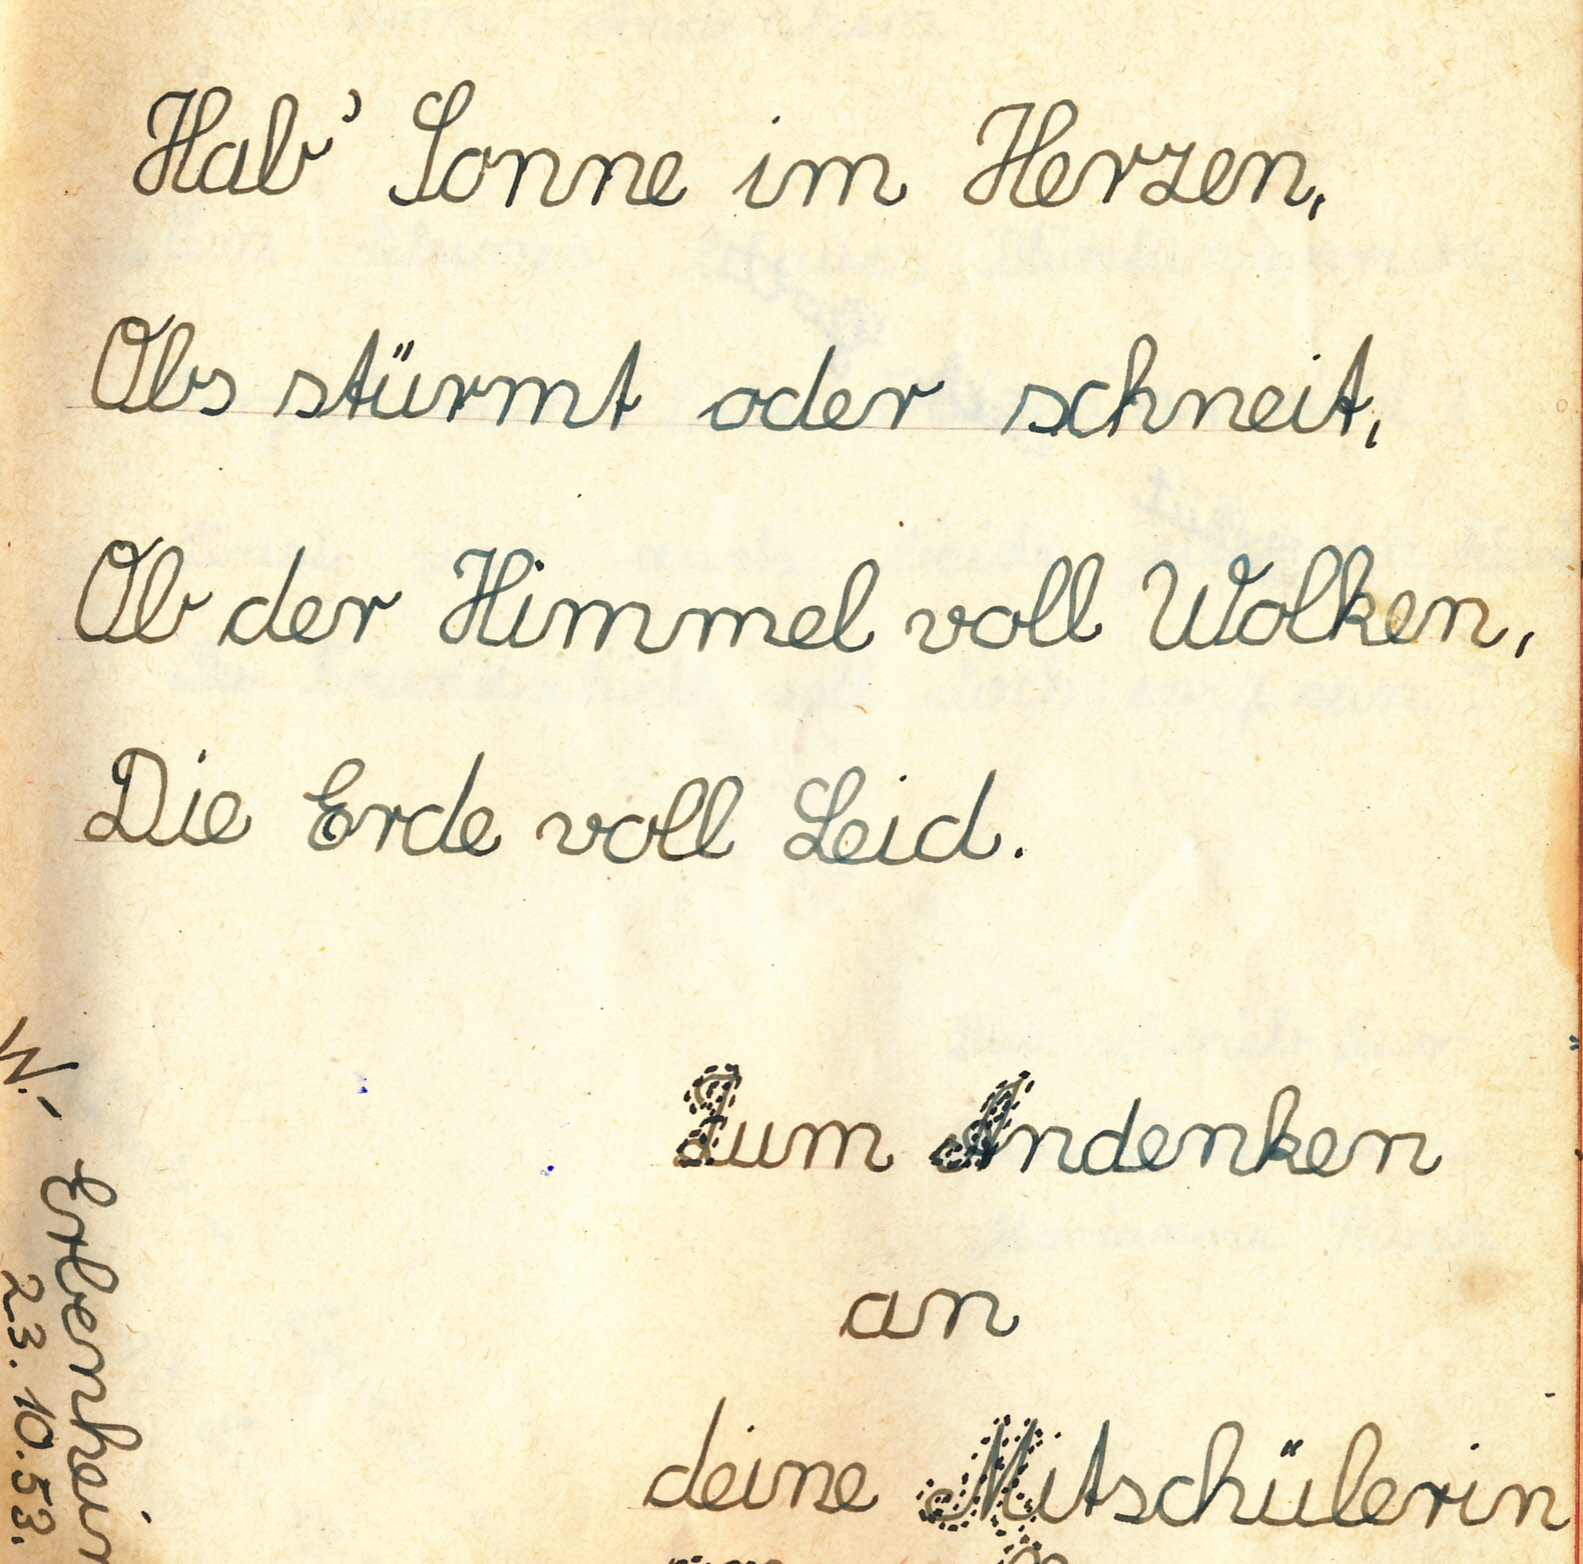 Hab' Sonne im Herzen,
Obs stürmt oder schneit,
Ob der Himmel voll Wolken,
Die Erde voll Leid.
Zum Andenken
an
deine Mitschülerin
W.-Erbenheim
23.10.53.